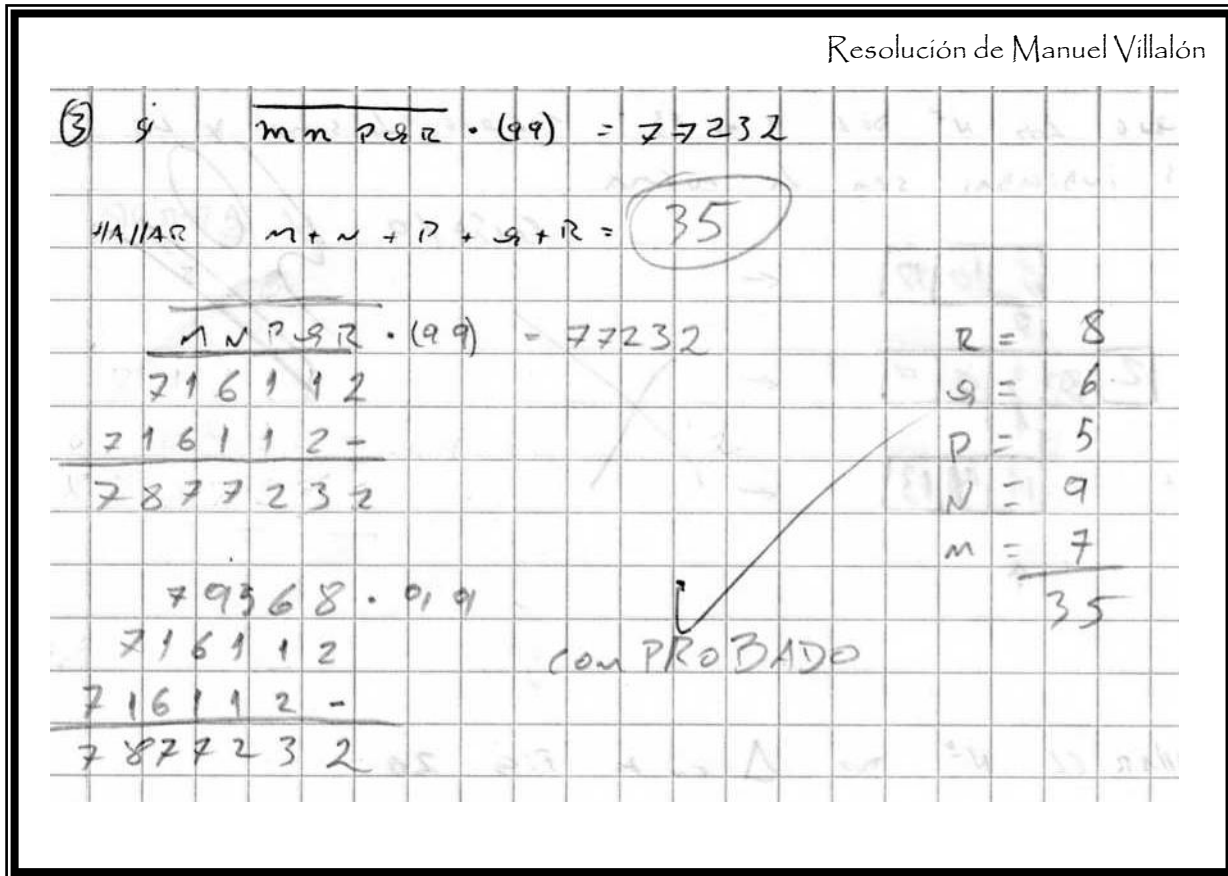 Resolución de Manuel Villalón
③ si mnpqR · (99) = 77232
HAllAR M + N + P + q + R = 35
MNPqR · (99) = 77232
716112
716112 -
7877232
R = 8
q = 6
P = 5
N = 9
M = 7
35
79568 · 99
716112
716112 -
7877232
comPROBADO